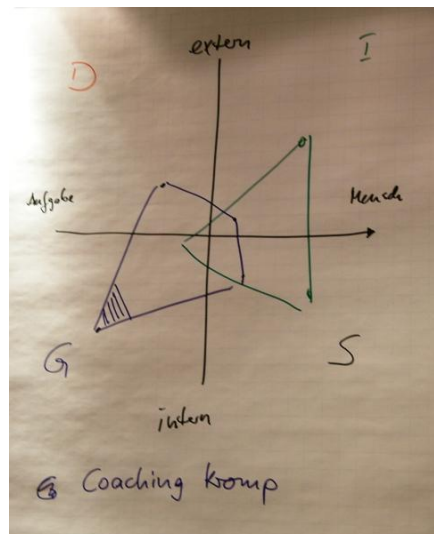 extern
D
I
Aufgabe
Mensch
G
S
intern
Coaching Kromp